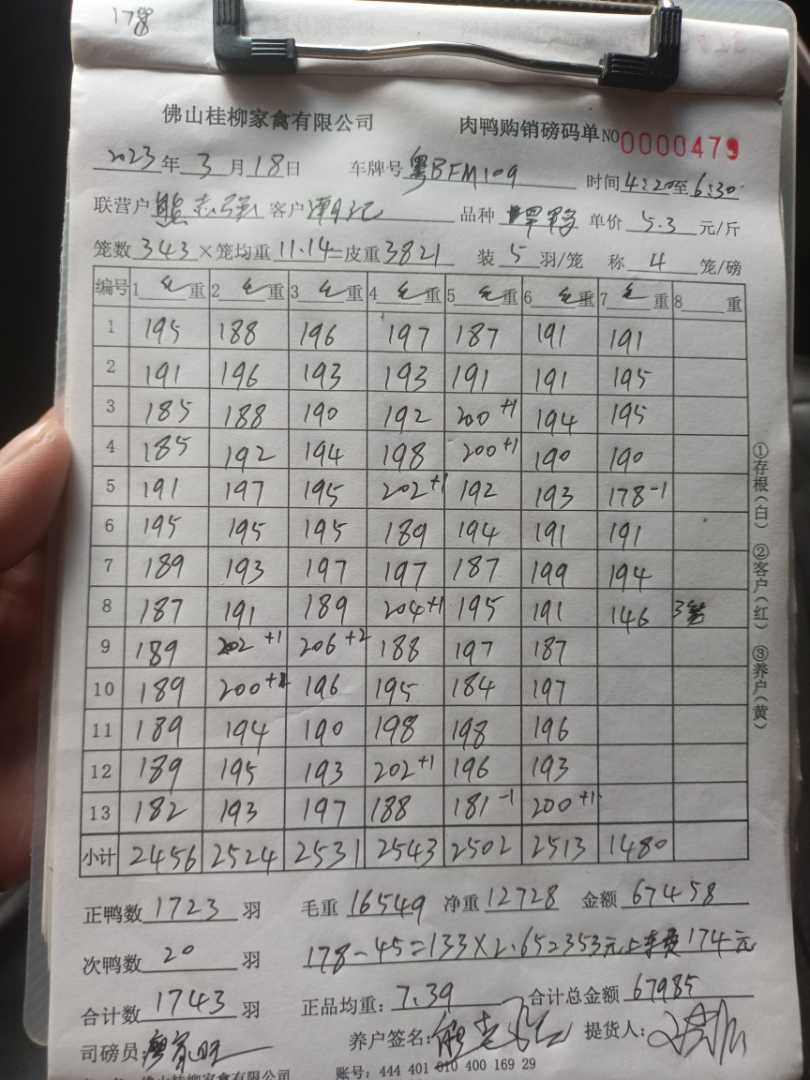 178
佛山桂柳家禽有限公司 肉鸭购销磅码单 NO 0000479
2023年3月18日 车牌号 粤BFM109 时间 4:20至6:30
联营户 熊志强 客户 谭记 品种 单价 5.3 元/斤
笼数 343 ×笼均重 11.14=皮重 3821 装 5 羽/笼 称 4 笼/磅
编号 1 毛 重 2 毛 重 3 毛 重 4 毛 重 5 毛 重 6 毛 重 7 毛 重 8 重
1 195 188 196 197 187 191 191
2 191 196 193 193 191 191 195
3 185 188 190 192 200+1 194 195
4 185 192 194 198 200+1 190 190
5 191 197 195 202+1 192 193 178-1
6 195 195 195 189 194 191 191
7 189 193 197 197 187 199 194
8 187 191 189 204+1 195 191 146 3笼
9 189 202+1 206+2 188 197 187
10 189 200+1 196 195 184 197
11 189 194 190 198 198 196
12 189 195 193 202+1 196 193
13 182 193 197 188 181-1 200+1
小计 2456 2524 2531 2543 2502 2513 1480
①存根(白) ②客户(红) ③养户(黄)
正鸭数 1723 羽 毛重 16549 净重 12728 金额 67458
次鸭数 20 羽 178-45=133×2.65=353元上车费174元
合计数 1743 羽 正品均重: 7.39 合计总金额 67985
司磅员: 养户签名: 提货人:
佛山桂柳家禽有限公司 账号: 444 401 010 400 169 29